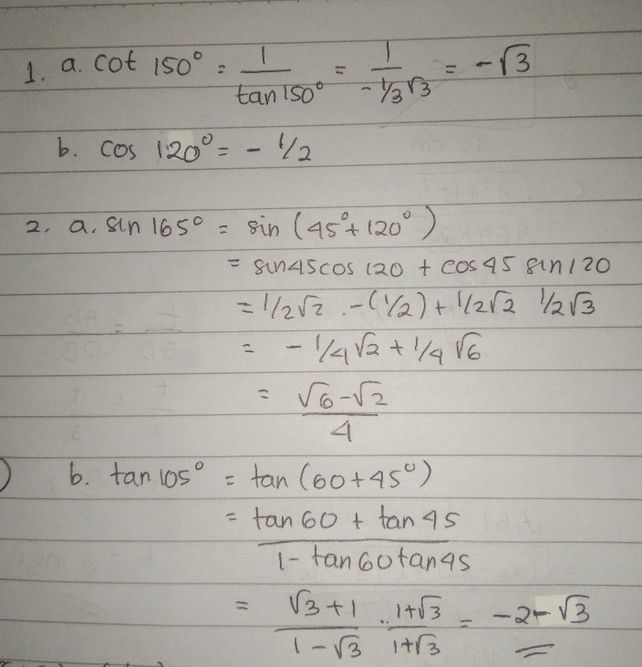 1. a. cot 150° = 1/tan 150° = 1/(-1/3√3) = -√3
b. cos 120° = - 1/2
2. a. sin 165° = sin (45°+120°)
= sin45cos 120 + cos 45 sin 120
= 1/2√2 .-(1/2) + 1/2√2 1/2√3
= - 1/4√2 + 1/4 √6
= (√6-√2)/4
b. tan 105° = tan (60+45°)
= (tan 60 + tan 45)/(1- tan60tan45)
= (√3+1)/(1-√3) . (1+√3)/(1+√3) = -2-√3